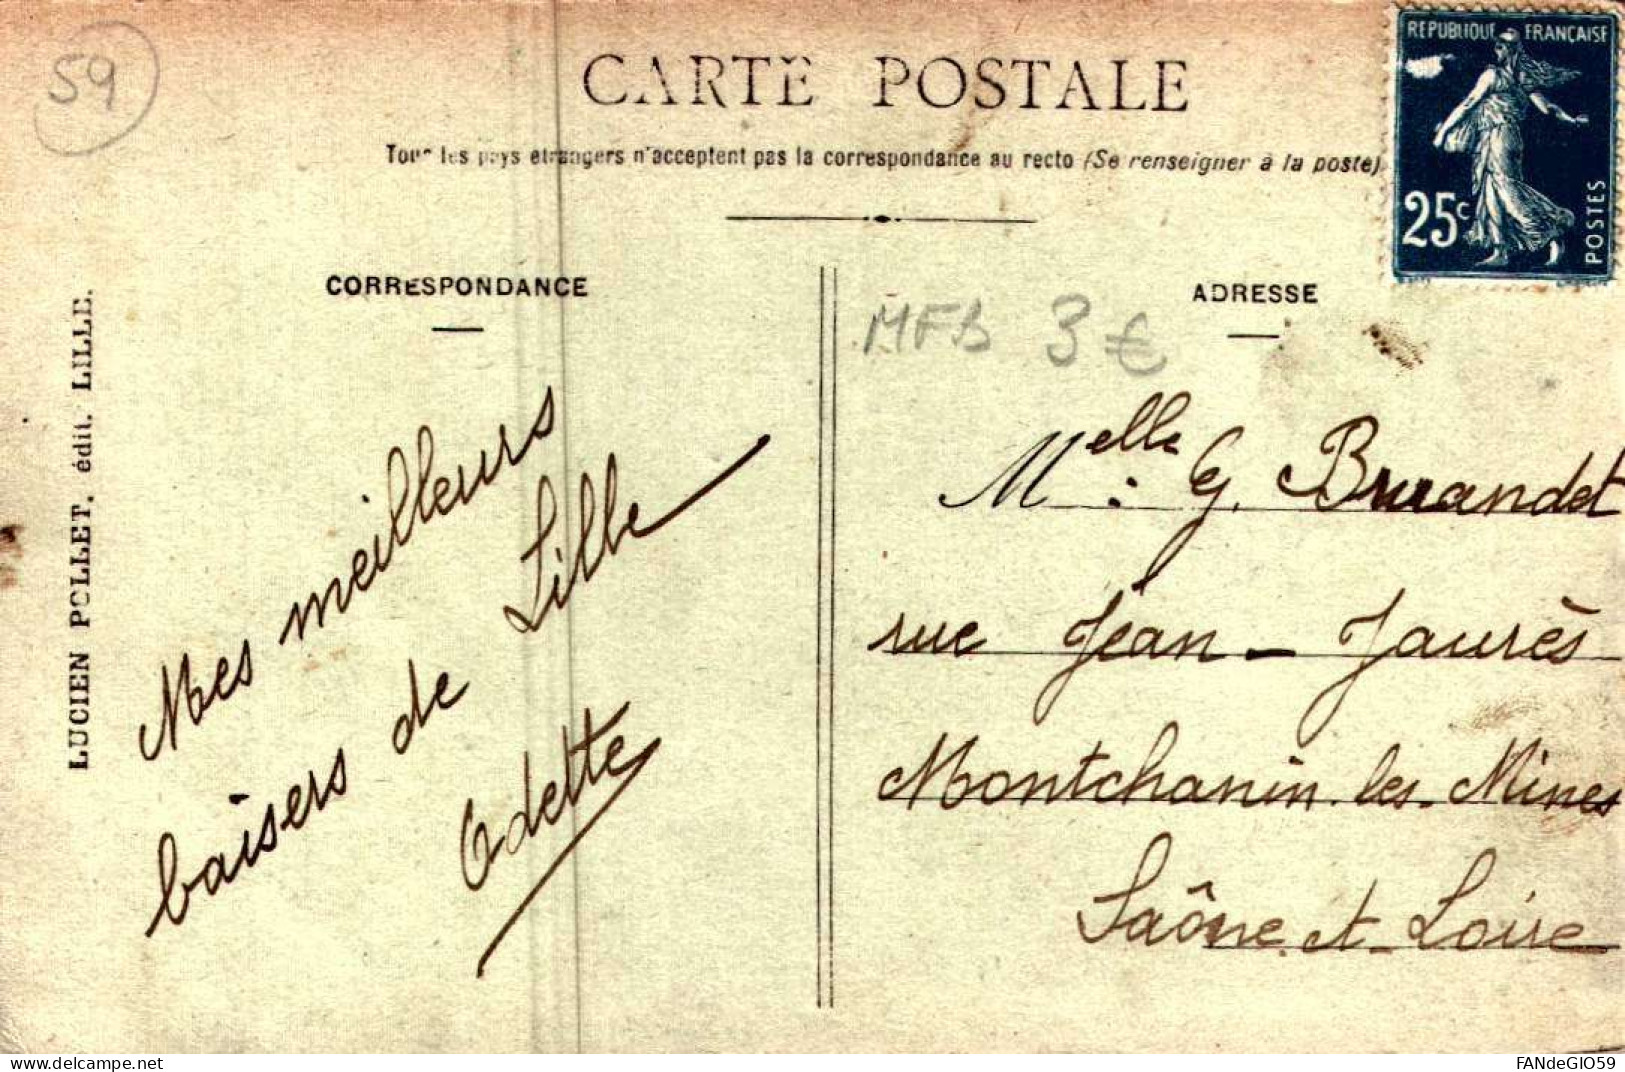 59
CARTE POSTALE
Tous les pays etrangers n'acceptent pas la correspondance au recto (Se renseigner à la poste)
REPUBLIQUE FRANÇAISE
25c
POSTES
LUCIEN POLLET, édit. LILLE.
CORRESPONDANCE
Mes meilleurs
baisers de Lille
Odette
ADRESSE
MFB 3 €
Melle G. Bruandet
rue Jean-Jaurès
Montchanin-les-Mines
Saône et Loire
delcampe.net
FANdeGIO59